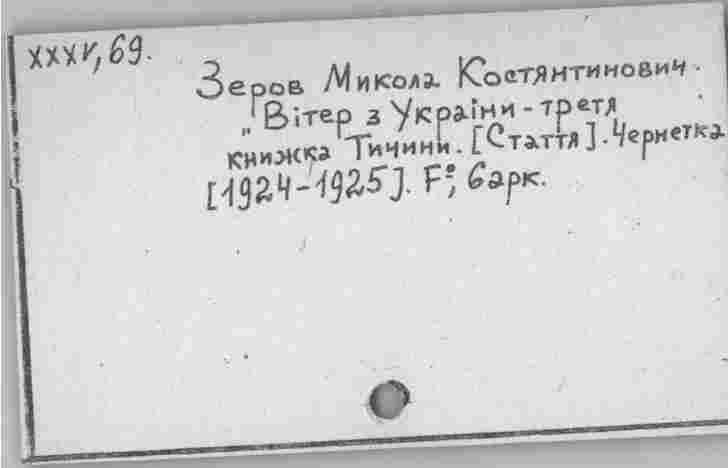 XXXV, 69.
Зеров Микола Костянтинович.
„Вітер з України - третя
книжка Тичини. [Стаття]. Чернетка
[1924-1925]. F°, 6 арк.